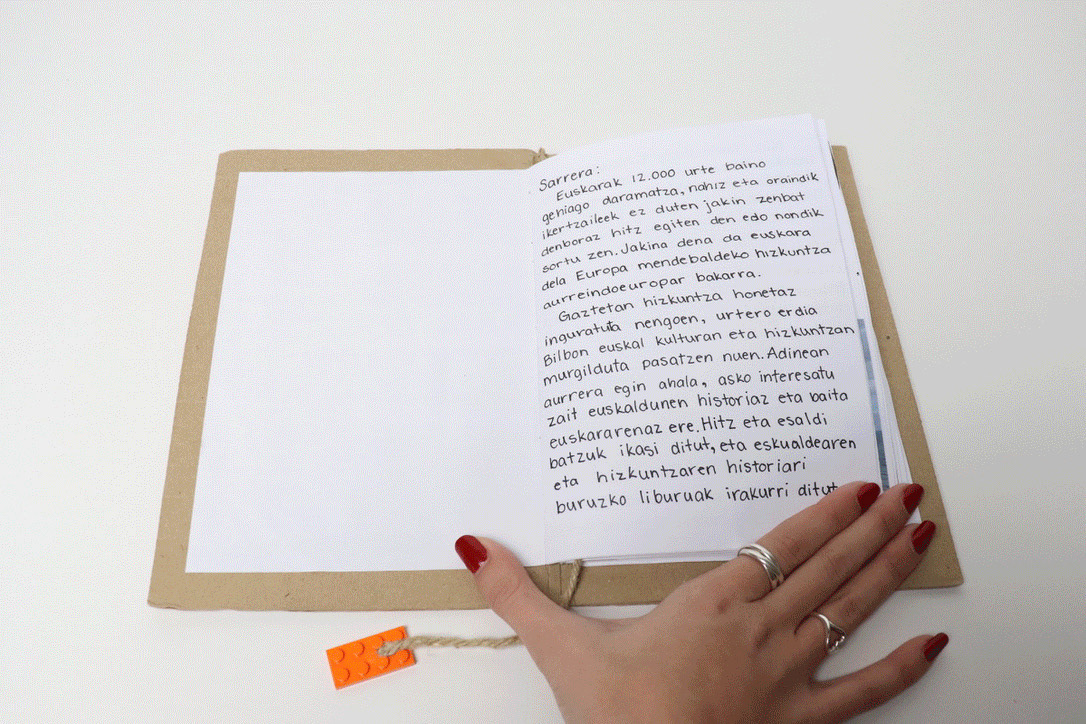 Sarrera:
Euskarak 12.000 urte baino
gehiago daramatza, nahiz eta oraindik
ikertzaileek ez duten jakin zenbat
denboraz hitz egiten den edo nondik
sortu zen. Jakina dena da euskara
dela Europa mendebaldeko hizkuntza
aurreindoeuropar bakarra.
Gaztetan hizkuntza honetaz
inguratuta nengoen, urtero erdia
Bilbon euskal kulturan eta hizkuntzan
murgilduta pasatzen nuen. Adinean
aurrera egin ahala, asko interesatu
zait euskaldunen historiaz eta baita
euskararenaz ere. Hitz eta esaldi
batzuk ikasi ditut, eta eskualdearen
eta hizkuntzaren historiari
buruzko liburuak irakurri ditut